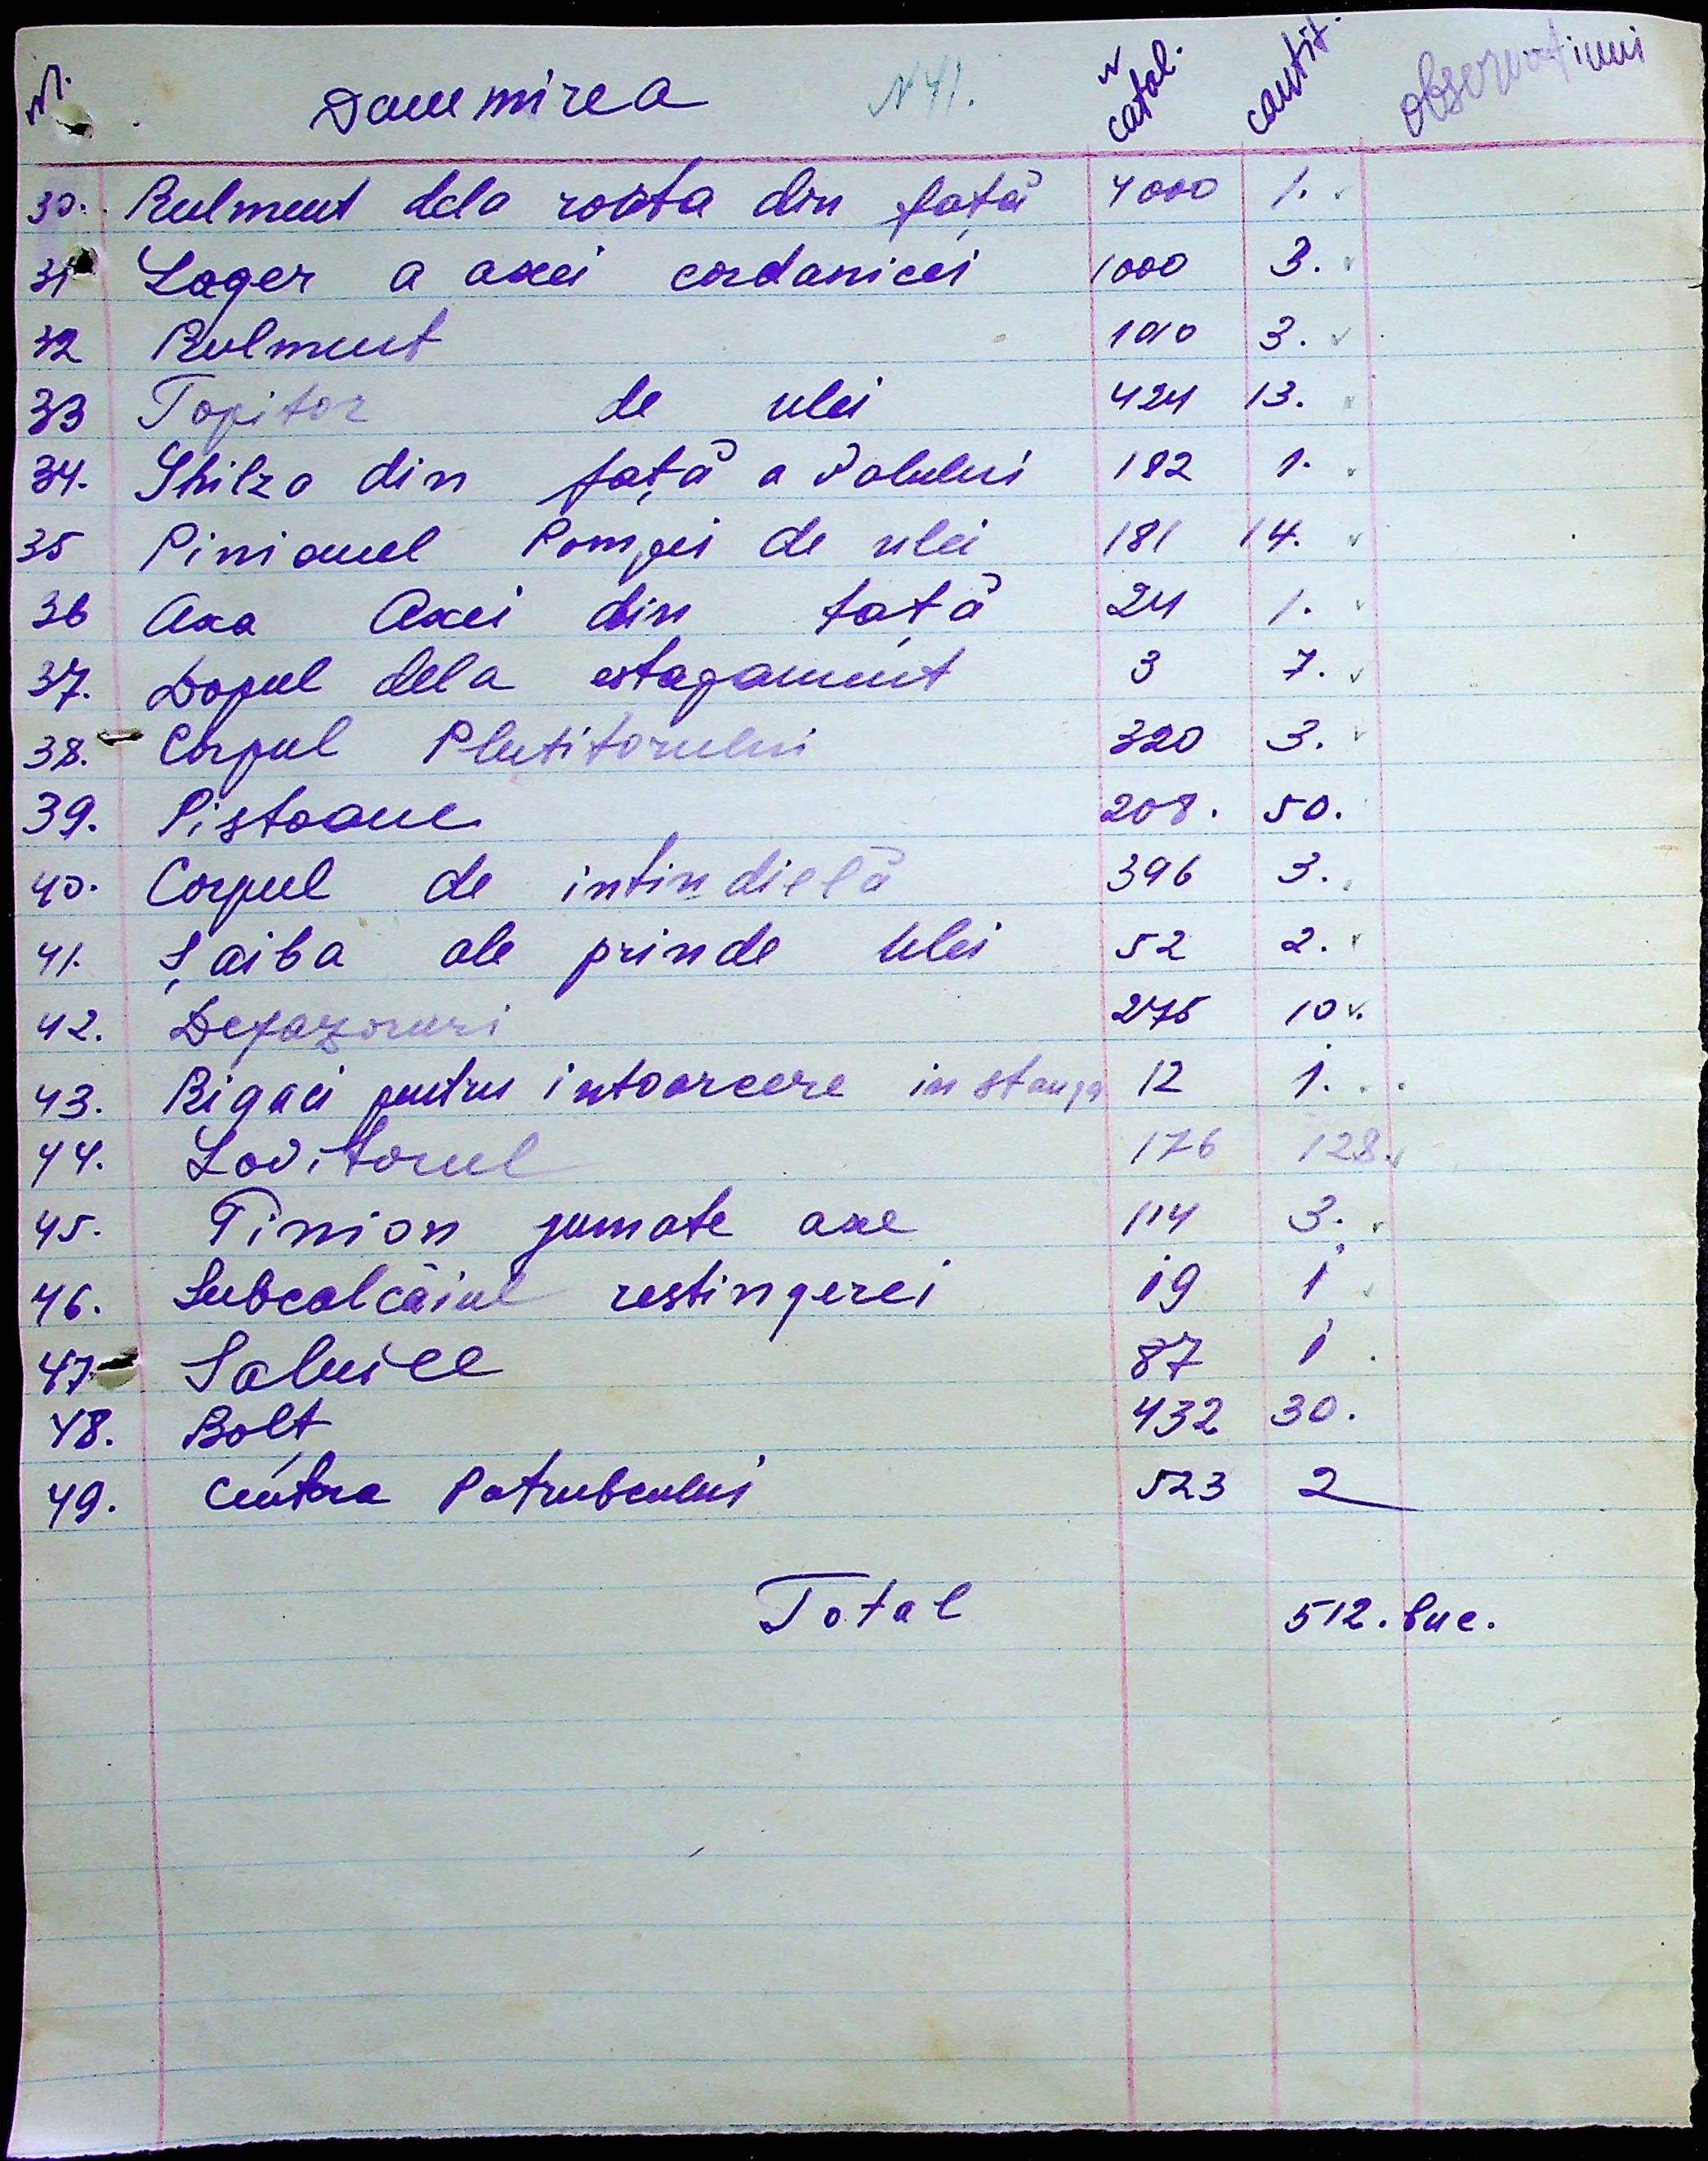 N. Denumirea N 41. N catal. cantit. observatiuni
30. Rulment dela roata din față 4000 1.
31 Lager a axei cardanicei 1000 3.
32 Rulment 1010 3.
33 Topitor de ulei 424 13.
34. Ghilza din față a Valului 182 1.
35 Pinionul Pompei de ulei 181 14.
36 Axa Axei din față 24 1.
37. Dopul dela estagament 3 7.
38. Corpul Plutitorului 320 3.
39. Pistoane 208. 50.
40. Corpul de intindielă 396 3.
41. Șaiba de prinde Ulei 52 2.
42. Defazoruri 275 10.
43. Rigaci pentru intoarcere in stanga 12 1.
44. Lovitorul 176 128.
45. Pinion jumate axe 114 3.
46. Subcalcâiul restingerei 19 1
47 Salnice 87 1
48. Bolt 432 30.
49. Patrubcului 523 2
Total 512. buc.